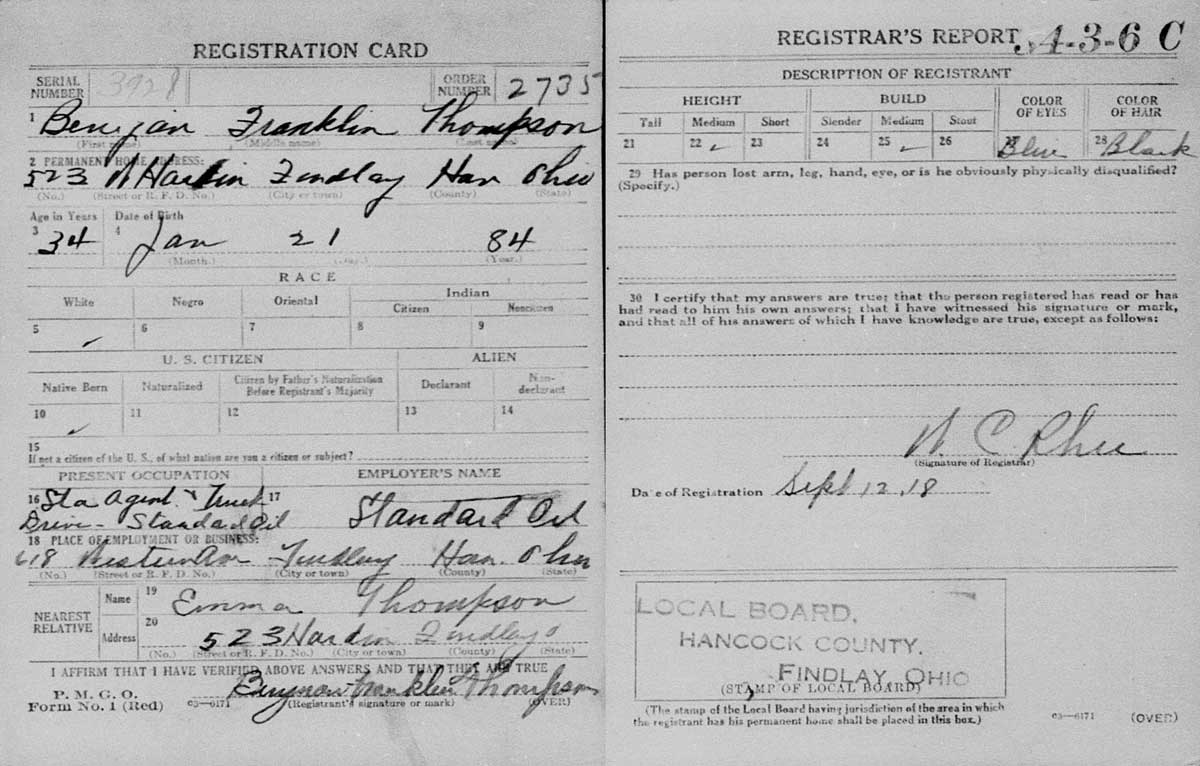 REGISTRATION CARD
SERIAL NUMBER 3928 ORDER NUMBER 2735
1 Benjian Franklin Thompson
(First name) (Middle name) (Last name)
2 PERMANENT HOME ADDRESS:
523 W Hardin Findlay Han Ohio
(No.) (Street or R. F. D. No.) (City or town) (County) (State)
Age in Years Date of Birth
3 34 4 Jan 21 84
(Month.) (Day.) (Year.)
RACE
White Negro Oriental Indian
Citizen Noncitizen
5 ✓ 6 7 8 9
U. S. CITIZEN ALIEN
Native Born Naturalized Citizen by Father's Naturalization Before Registrant's Majority Declarant Non-declarant
10 ✓ 11 12 13 14
15
If not a citizen of the U. S., of what nation are you a citizen or subject?
PRESENT OCCUPATION EMPLOYER'S NAME
16 Sta Agent & Truck 17
Driver - Standard Oil Standard Oil
18 PLACE OF EMPLOYMENT OR BUSINESS:
618 Western Ave Findlay Han. Ohio
(No.) (Street or R. F. D. No.) (City or town) (County) (State)
NEAREST RELATIVE
Name 19 Emma Thompson
Address 20 523 Hardin Findlay O
(No.) (Street or R. F. D. No.) (City or town) (County) (State)
I AFFIRM THAT I HAVE VERIFIED ABOVE ANSWERS AND THAT THEY ARE TRUE
P. M. G. O.
Form No. 1 (Red) 03—6171 Benjman Franklin Thompson
(Registrant's signature or mark) (OVER)
REGISTRAR'S REPORT 34-3-6 C
DESCRIPTION OF REGISTRANT
HEIGHT BUILD COLOR OF EYES COLOR OF HAIR
Tall Medium Short Slender Medium Stout
21 22 ✓ 23 24 25 ✓ 26 27 Blue 28 Black
29 Has person lost arm, leg, hand, eye, or is he obviously physically disqualified?
(Specify.)
30 I certify that my answers are true; that the person registered has read or has
had read to him his own answers; that I have witnessed his signature or mark,
and that all of his answers of which I have knowledge are true, except as follows:
W. C. Rhee
(Signature of Registrar)
Date of Registration Sept 12, 18
LOCAL BOARD,
HANCOCK COUNTY,
FINDLAY, OHIO
(STAMP OF LOCAL BOARD)
(The stamp of the Local Board having jurisdiction of the area in which
the registrant has his permanent home shall be placed in this box.)
03—6171 (OVER)